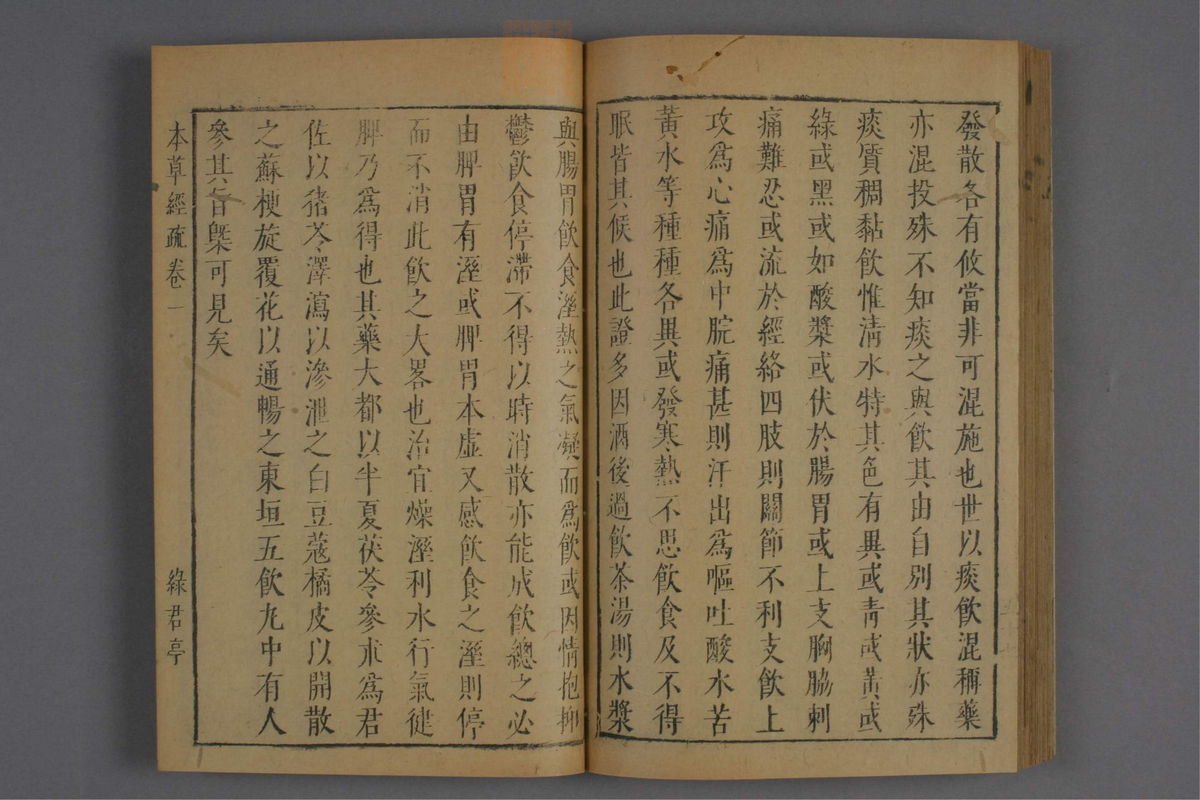 發散各有攸當非可混施也世以痰飲混稱藥
亦混投殊不知痰之與飲其由自別其狀亦殊
痰質稠黏飲惟清水特其色有異或青或黃或
綠或黑或如酸漿或伏於腸胃或上支胸脇刺
痛難忍或流於經絡四肢則關節不利支飲上
攻爲心痛爲中脘痛甚則汗出爲嘔吐酸水苦
黃水等種種各異或發寒熱不思飲食及不得
眠皆其候也此證多因酒後過飲茶湯則水漿
與腸胃飲食溼熱之氣凝而爲飲或因情抱抑
鬱飲食停滯不得以時消散亦能成飲總之必
由脾胃有溼或脾胃本虛又感飲食之溼則停
而不消此飲之大畧也治宜燥溼利水行氣健
脾乃爲得也其藥大都以半夏茯苓參朮爲君
佐以猪苓澤瀉以滲泄之白豆蔻橘皮以開散
之蘇梗旋覆花以通暢之東垣五飲丸中有人
參其旨槩可見矣
本草經疏 卷一 綠君亭